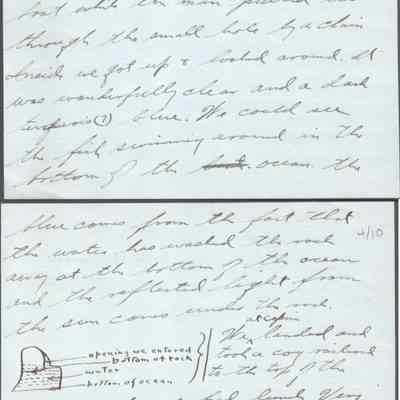 boat while the man
through the small hole by a chain
inside we got up & looked around. It
was wonderfully clear and a dark
(?) blue. We could see
the fish swimming around in the
bottom of the ocean. The
blue comes from the fact that
4/10
the water has washed the rock
away at the bottom of the ocean
and the reflected light from
the sun comes under the rock.
at Capri
We landed and
took a cog railroad
to the top of the
opening we entered
bottom of rock
water
bottom of ocean
had lunch. Very